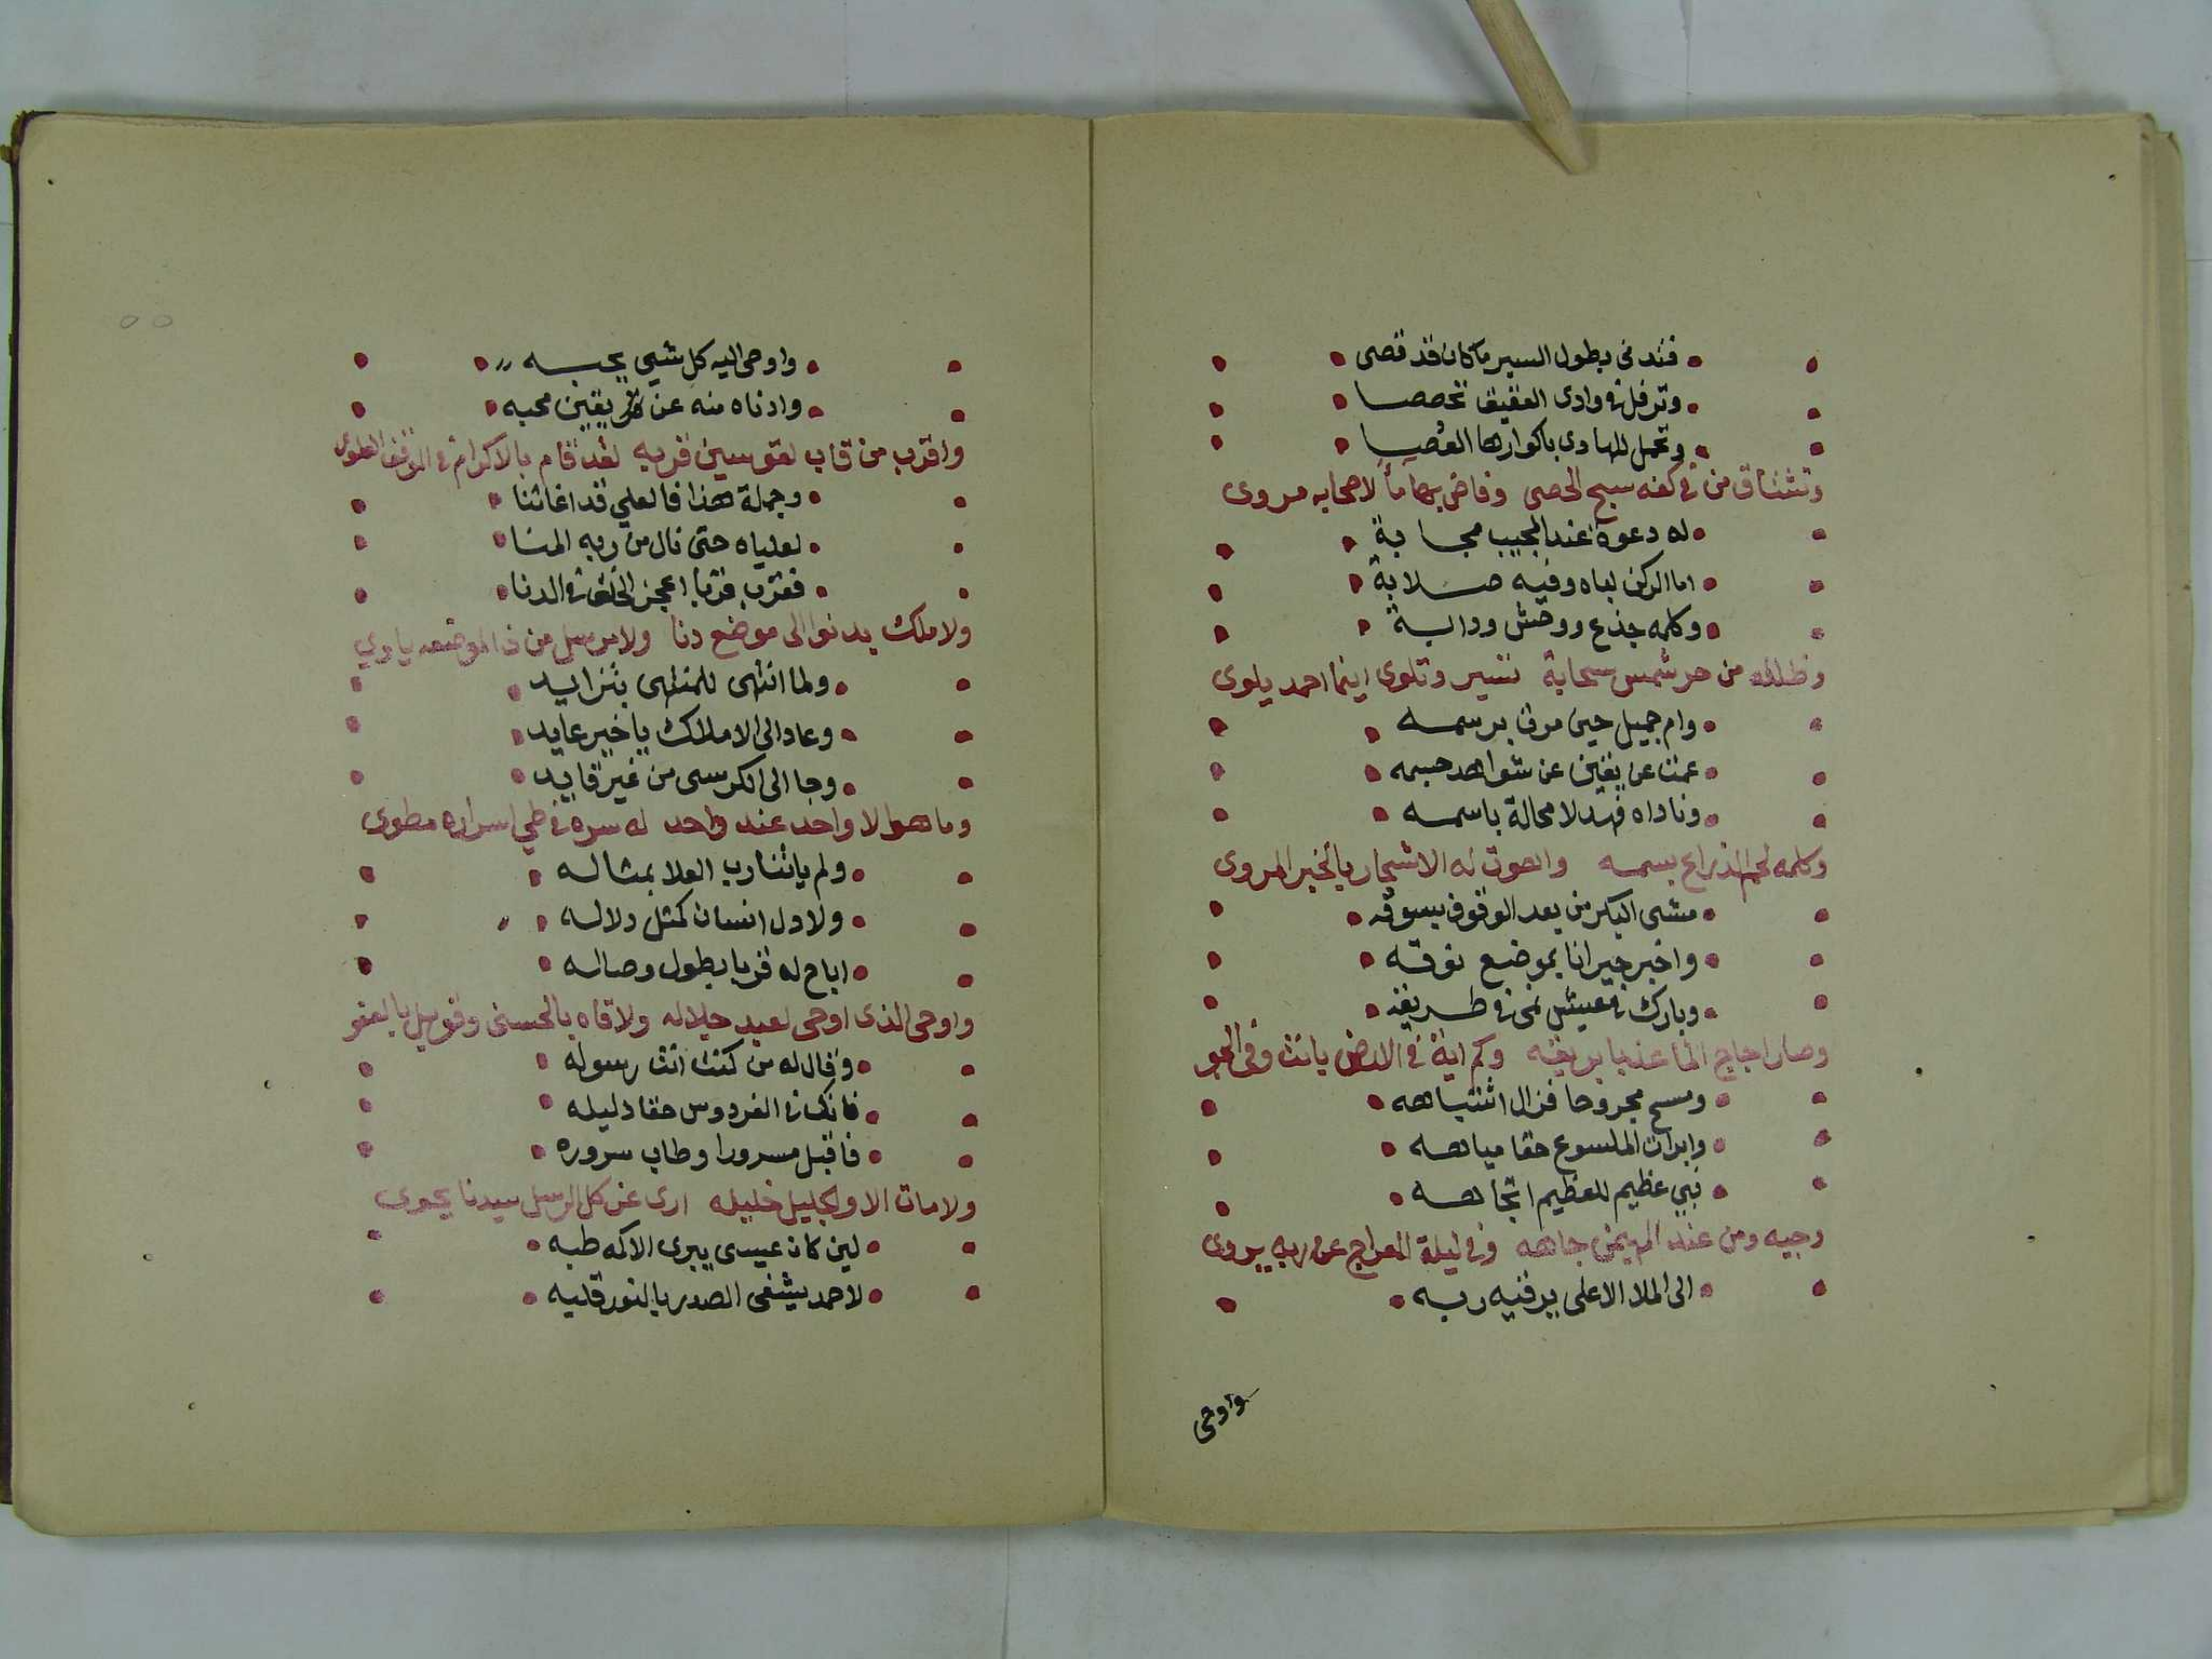 فتدنى بطول السير ما كان قد قصى
وترفل فى وادى العقيق تخصصا
وتحمل للهادى باكوارها العُصبا
وتشتاق من فى كفه سبح الحصى وفاض بها ماً لاصحابه مروى
له دعوة عند المجيب مجابة
اما الركن لباه وفيه صلابة
وكلمه جذع ووحش وداابة
وظلله من حر شمس سحابة تسير وتلوى اينما احمد يلوى
وام جميل حين مرت برسمه
عمت عن يقين عن شواهد جسمه
وناداه فهد لا محالة باسمه
وكلمه لحم الذراع بسمه واهوت له الاشجار بالخبر المروى
مشى البكر من بعد الوقوف بسوقه
واخبر جيرانا بموضع نوقه
وبارك فى عيش نمى فى طريقه
وصار اجاج الما عذبا بريقه وكم اية فى الارض بانت وفى الجو
ومسح مجروحا فزال اشتباهه
وابرات الملسوع حقا مياهه
نبي عظيم للعظيم اتجاهه
وجيه ومن عند المهيمن جاهه وفى ليلة المعراج عن ربه يروى
الى الملا الاعلى يرقيه ربه
واوحى
واوحى اليه كل شيى يحبه
وادناه منه عن يقين محبه
واقرب من قاب لقوسين قربه لقد قام بالاكرام فى الموقف العلوى
وجملة هذا فالعلي قد اغاثنا
لعلياه حتى نال من ربه المنا
فقرب قربا اعجز الخلق فى الدنا
ولا ملك يدنوا الى موضع دنا ولا مرسل من ذا الموضعه ياوي
ولما انتهى للمنتهى بتزايد
وعاد الى الاملاك يا خير عايد
وجا الى الكرسى من غير قايد
وما هو الا واحد عند واحد له سره فى طي اسراره مطوى
ولم ياتنا رب العلا بمثاله
ولا دل انسان كمثل دلاله
اباح له قربا بطول وصاله
واوحى الذى اوحى لعبد جلاله ولاقاه بالحسنى وقوبل بالعفو
وقال له من كنت انت رسوله
فانك فى الفردوس حقا دليله
فاقبل مسرورا وطاب سروره
ولا مات الا والجليل خليله ارى عن كل الرسل سيدنا يحوى
لين كان عيسى يبرى الاكمه طبه
لاحمد يشفى الصدر بالنور قلبه